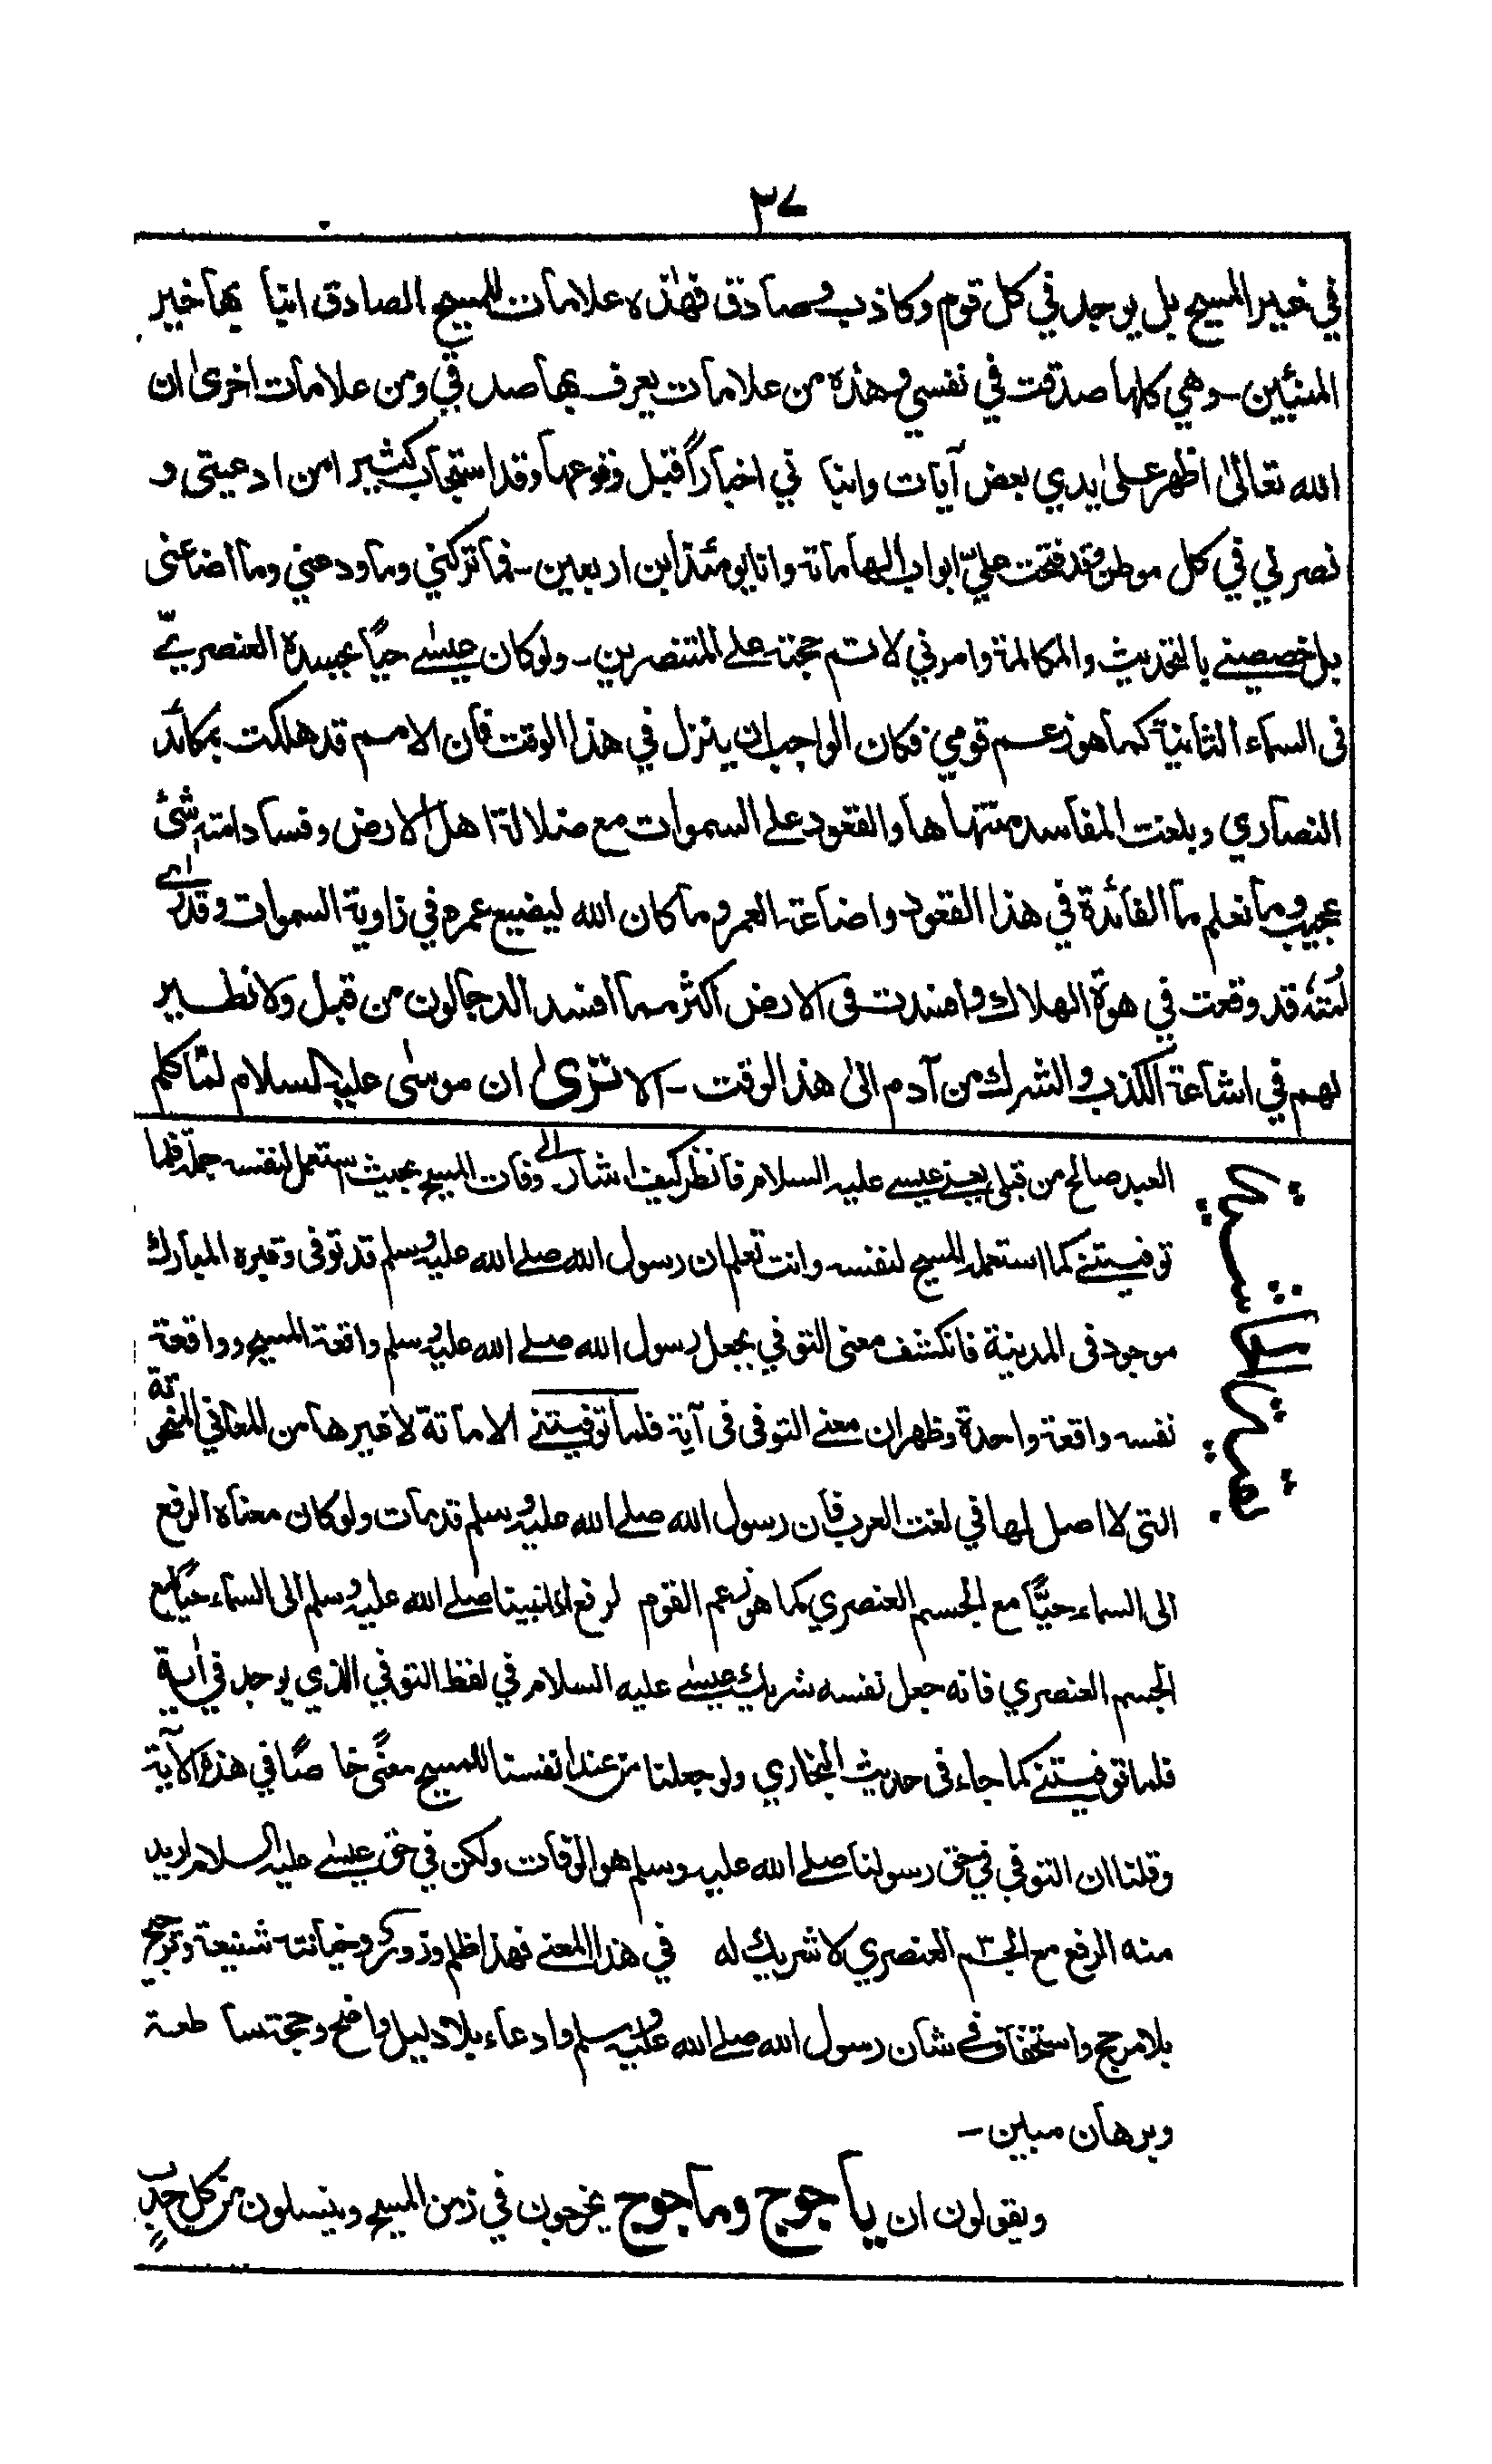 ٣٧
في غير المسيح بل يوجد في كل قوم وكاذب وصادق فهذه علامات للمسيح الصادق انبأ بها خير
المنبئين - وهي كلها صدقت في نفسي وهذه من علامات يعرف بها صدقي ومن علامات اخرىٰ ان
الله تعالىٰ اظهر علىٰ يدي بعض آيات وانبأ ني اخباراً قبل وقوعها وقد استجاب كثيرا من ادعيتي و
نصرني في كل موطن وقد فتحت عليّ ابواب الهاماته وانا يومئذ ابن اربعين - فما تركني وما ودعني وما اضاعني
بل خصصنے بالتحديث والمكالمة وامرني لاتم حجته علے المتنصرين - ولو كان عيسٰے حيًّا بجسده العنصريّ
فى السماء الثانية كما هو زعم قومي فكان الواجب ان ينزل في هذا الوقت فان الامم قد هلكت بمكائد
النصاري وبلغت المفاسد منتهاها والقعود علے السموات مع ضلالة اهل الارض وفساد امته شئ
عجيب وما نعلم ما الفائدة في هذا القعود واضاعة العمر وما كان الله ليضيع عمره في زاوية السموات وقد رأے
امته قد وقعت في هوة الهلاك وافسدت فى الارض اكثر مما افسد الدجالون من قبل ولا نظير
لهم في اشاعة الكذب والشرك من آدم الىٰ هذا الوقت - الا ترىٰ ان موسٰى عليه السلام لمّا كلم
العبد صالح من قبلي يعنے عيسے عليه السلام فانظر كيف اشار الے وفات المسيح بحيث استعمل لنفسه جملة فلما
توفيتنے كما استعمل المسيح لنفسه وانت تعلم ان رسول الله صلے الله عليه وسلم قد توفى وقبره المبارك
موجود فى المدينة فانكشف معنى التوفي بجعل رسول الله صلے الله عليه وسلم واقعة المسيح وواقعة
نفسه واقعة واحدة وظهر ان معنے التوفى فى آية فلما توفيتنے الاماتة لا غيرها من المعاني المنحوتة
التى لا اصل لها في لغت العرب فان رسول الله صلے الله عليه وسلم قد مات ولو كان معناه الرفع
الى السماء حيًّا مع الجسم العنصري كما هو زعم القوم لرفع اذا نبينا صلے الله عليه وسلم الى السماء حيًّا مع
الجسم العنصري فانه جعل نفسه شريك عيسٰے عليه السلام في لفظ التوفي الذي يوجد في آية
فلما توفيتنے كما جاء فى حديث البخاري ولو جعلنا من عند انفسنا للمسيح معنًى خاصًا في هذه الآية
وقلنا ان التوفي في حق رسولنا صلے الله عليه وسلم هو الوفات ولكن في حق عيسٰے عليه السلام اريد
منه الرفع مع الجسم العنصري لا شريك له في هذا المعنے فهذا ظلم وزور وخيانة شنيعة وترجيح
بلا مرجح واستخفاف فے شان رسول الله صلے الله عليه وسلم وادعاء بلا دليل واضح وحجة ساطعة
وبرهان مبين -
ويقولون ان ياجوج وماجوج يخرجون في زمن المسيح وينسلون من كل حدب